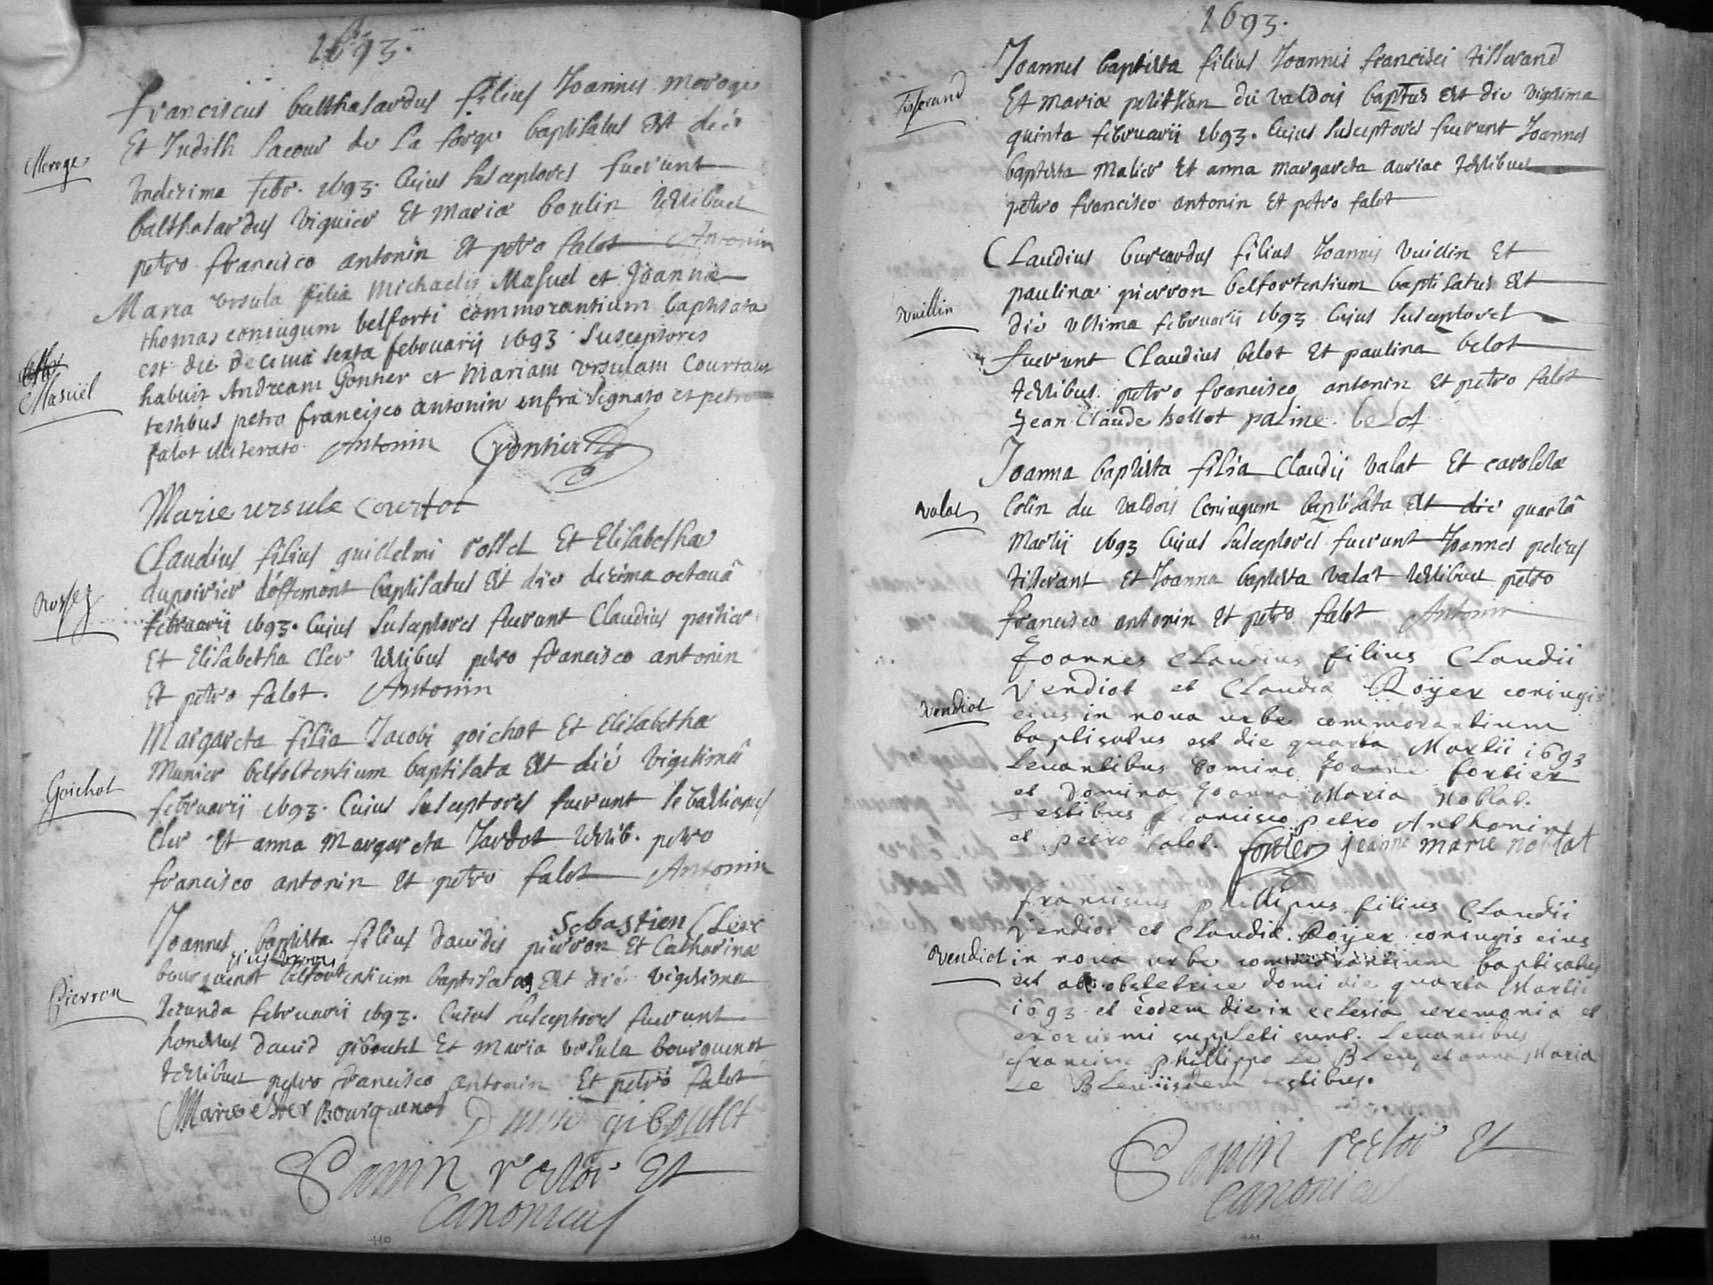 1693.
Franciscus balthasardus filius Joannis meroge
Meroge
Et Judith Lacour de La forge baptisatus Est die
undecima febr. 1693. Cujus susceptores fuerunt
balthasardus viguier Et Maria boulin testibus
petro francisco antonin Et petro falot Antonin
Maria Ursula filia Michaelis Masuel et Joannæ
thomas coniugum belforti commorantium baptisata
est die decima sexta februarij 1693 Susceptores
Masüel
habuit Andream Gontier et Mariam Ursulam Courtaut
testibus petro francisco antonin infra signato et petro
falot illiterato. Antonin Gontier
Marie ursule courtot
Claudius filius guillelmi rossel Et Elisabetha
dupoirier d'offemont baptisatus Est die decima octavâ
Rossez
februarij 1693. Cujus susceptores fuerunt Claudius poirier
Et Elisabetha Cler testibus petro francisco antonin
Et petro falot. Antonin
Margareta filia Jacobi goichot Et Elisabethæ
Munier belfortensium baptisata Est die vigesimâ
Goichot
februarij 1693. Cujus susceptores fuerunt sebastianus
Cler Et anna Margareta Jardot testib. petro
francisco antonin Et petro falot Antonin
Sebastien Clerc
Joannes baptista filius davidis pierron Et Catharina
bourquenot belfortensium baptisatus Est die vigesima
Pierron
secunda februarij 1693. Cujus susceptores fuerunt
honestus david giboutet Et maria ursula bourquenot
testibus petro francisco antonin Et petro falot
Marie ester Bourquenot giboutet
Sanin rector Et
canonicus
110
1693.
Joannes baptista filius Joannis francisci tisserand
Tisserand
Et maria petitjean du valdois baptus est die vigesima
quinta februarij 1693. Cujus susceptores fuerunt Joannes
baptista Malier Et anna margareta auriac testibus
petro francisco antonin Et petro falot
Claudius burcardus filius Joannis Vuillin Et
paulina pierron belfortensium baptisatus Est
Vuillin
die ultima februarij 1693 Cujus susceptores
fuerunt Claudius belot Et paulina belot
testibus petro francisco antonin Et petro falot
Jean Claude bellot paline belot
Joanna baptista filia Claudij valat Et caroletæ
valat
Colin du valdois Coniugum baptisata Est die quartâ
Martij 1693 Cujus susceptores fuerunt Joannes petrus
tisserant Et Joanna baptista valat testibus petro
francisco antonin Et petro falot Antonin
Joannes Claudius filius Claudii
Vendiot et Claudia Royer coniugis
Vendiot
eius in nova urbe commorantium
baptisatus est die quarta Martii 1693
Levantibus Domino Joanne fortier
et Domina Joanna Maria Noblat.
Testibus francisco petro Anthonin
et petro falot. fortier jeanne marie noblat
franciscus phillipus filius Claudii
Vendiot et Claudia Royer coniugis eius
Vendiot
in nova urbe commorantium baptisatus
est ab obstetrice domi die quarta Martii
1693 et eodem die in eclesia ceremonia et
exorcismi suppleti sunt. Levantibus
francisco phillippo Le Bleuf et anna Maria
Le Bleuf iisdem testibus.
Sanin rector Et
canonicus
111